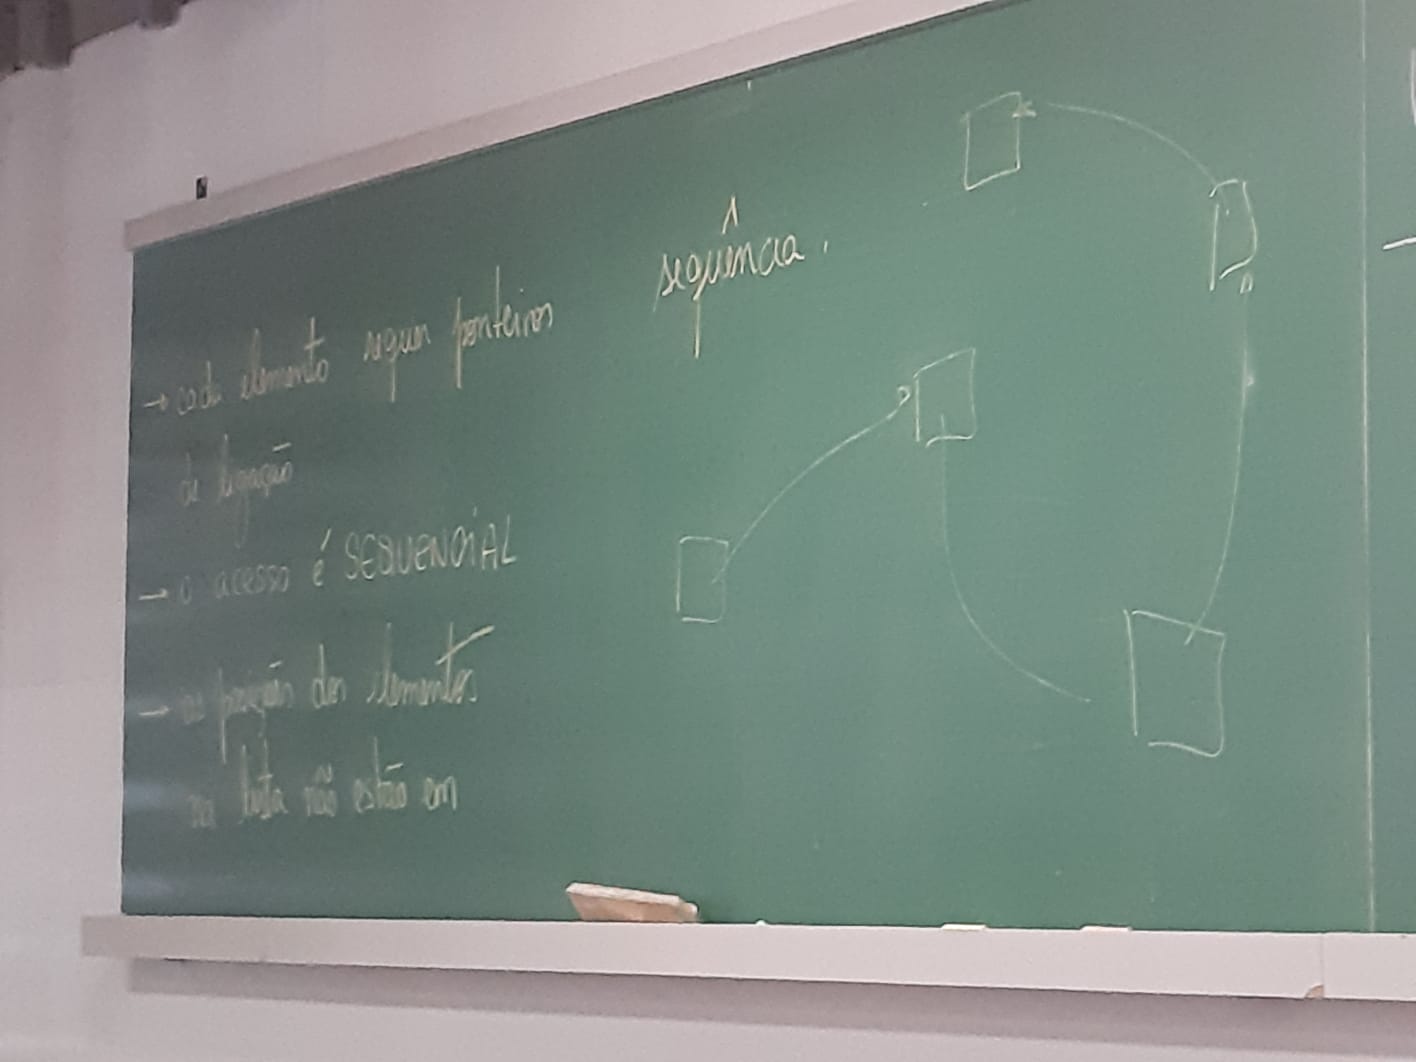 → cada elemento requer ponteiros
de ligação
→ o acesso é SEQUENCIAL
→ as posição dos elementos
na lista não estão em
sequência.